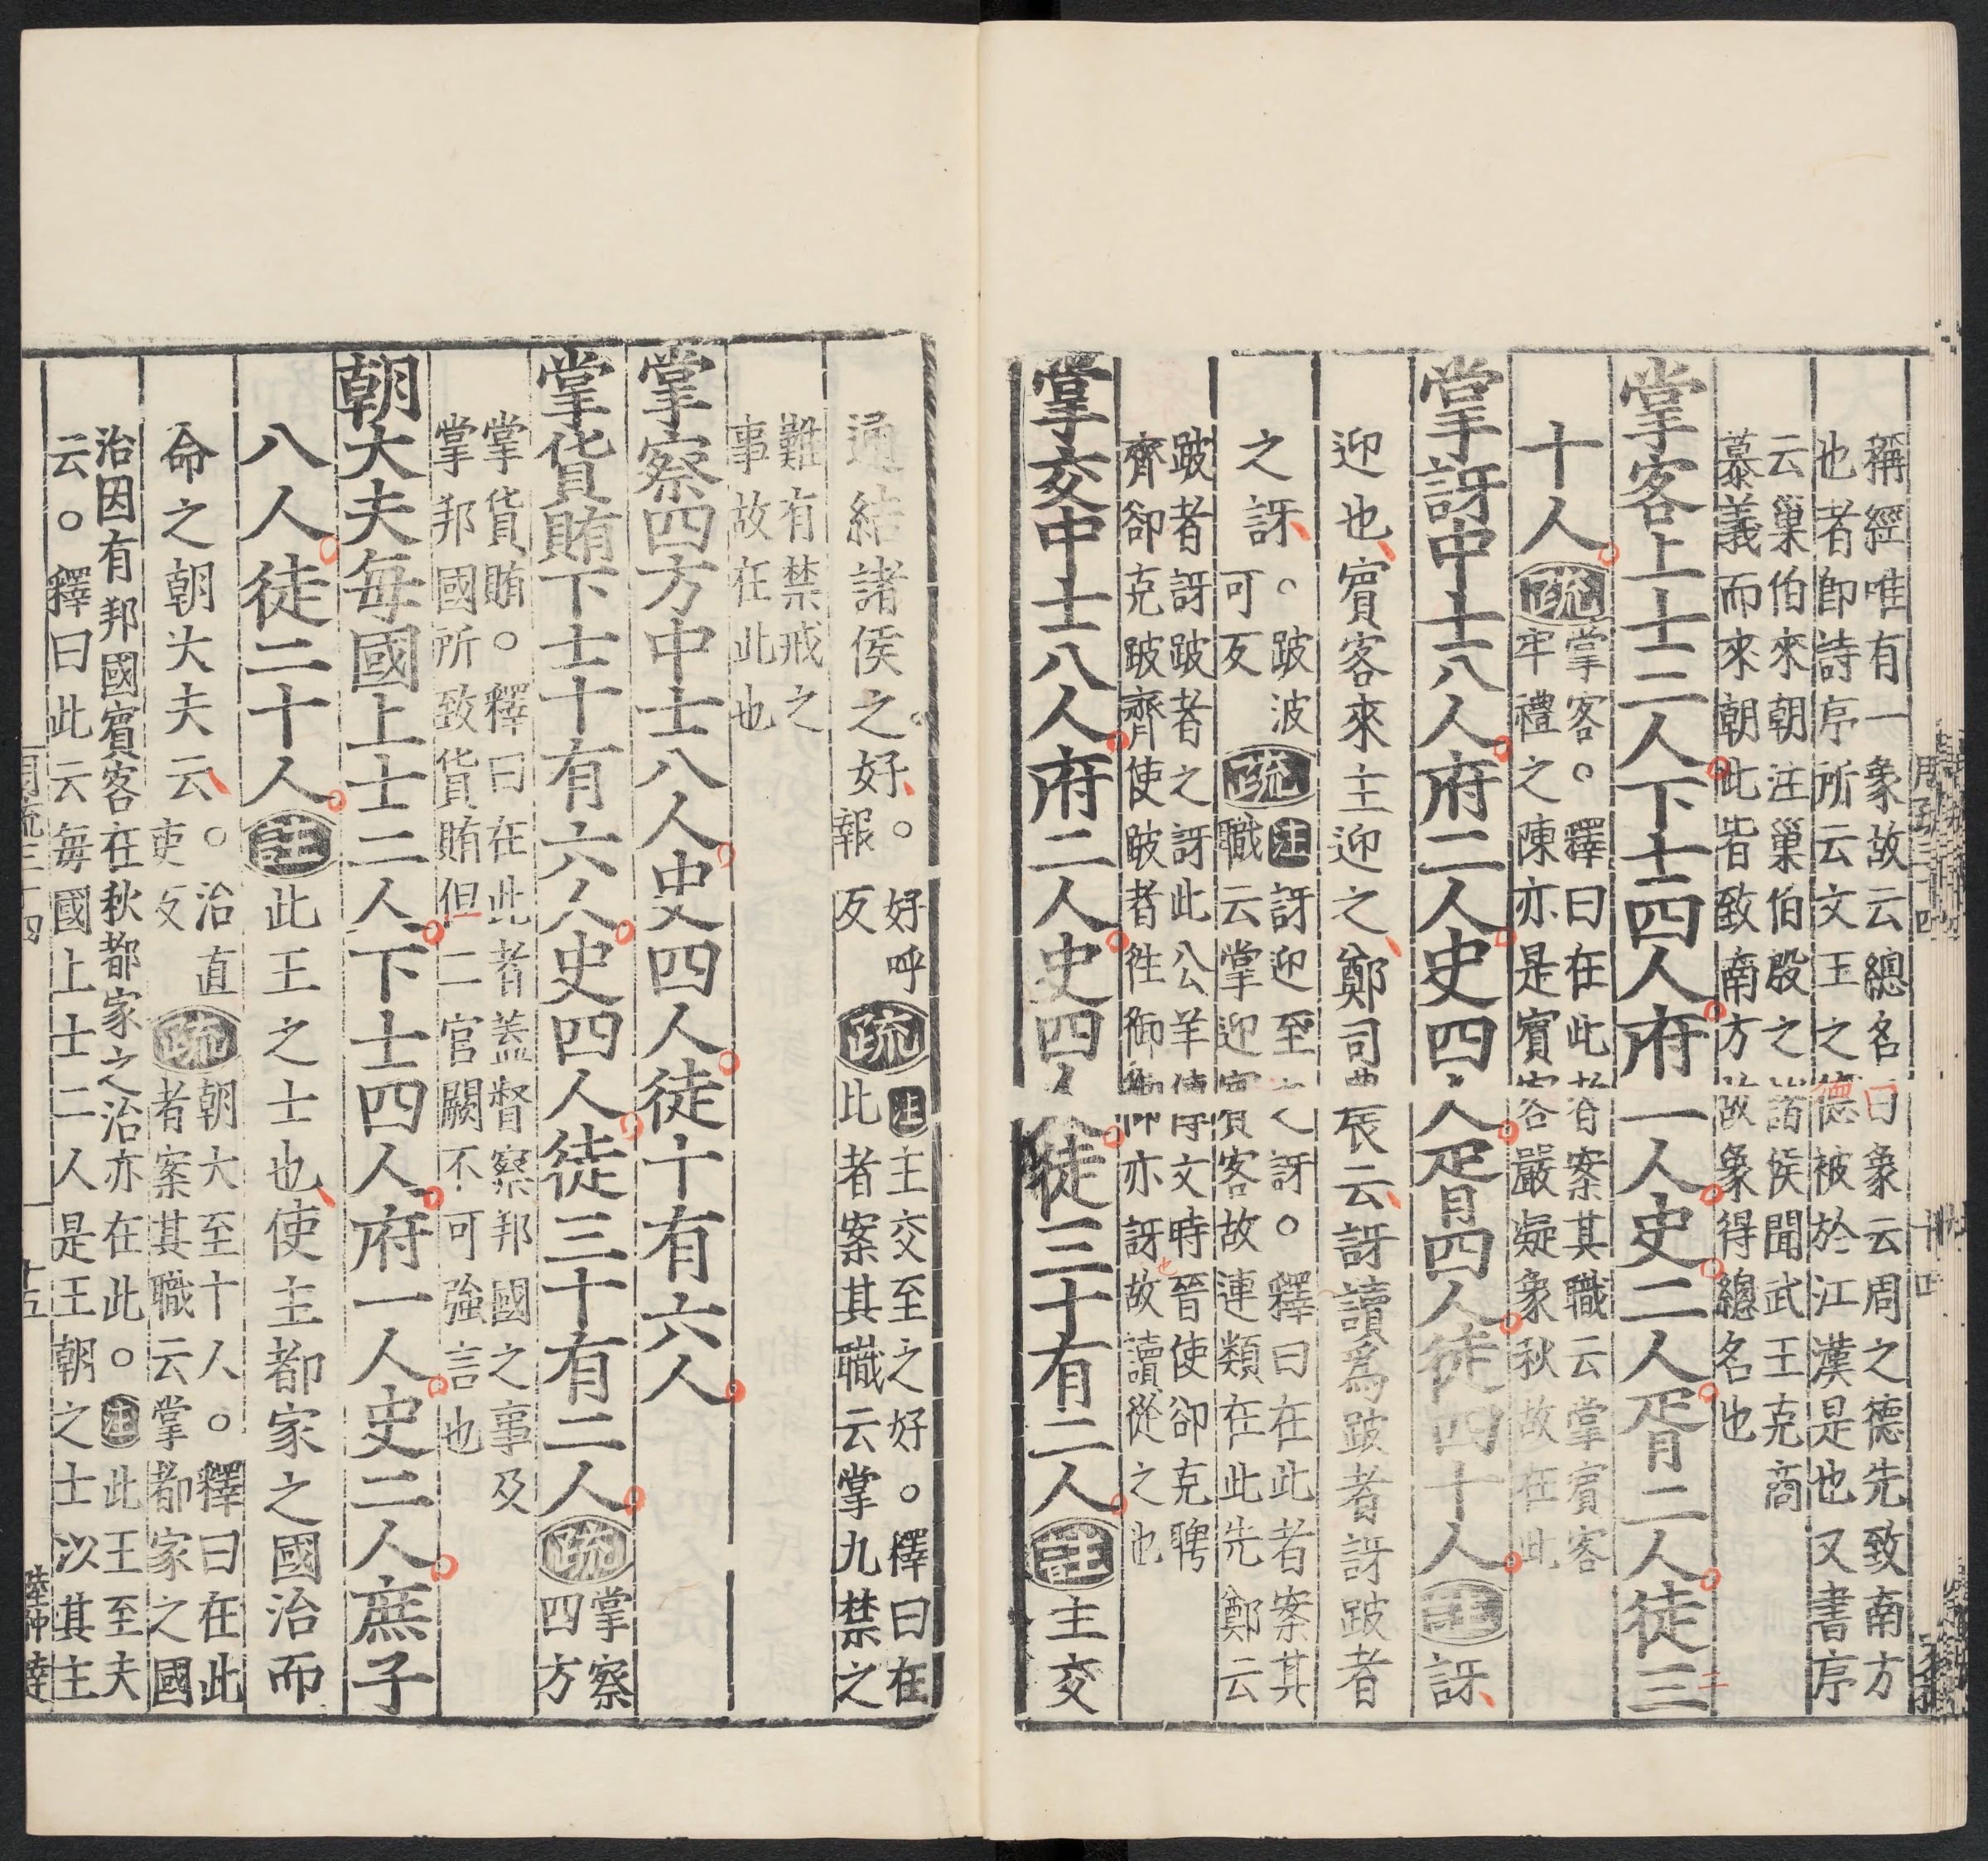 稱經唯有一象故云總名曰象云周之德先致南方
也者即詩序所云文王之德被於江漢是也又書序
云巢伯來朝注巢伯殷之諸侯聞武王克商
慕義而來朝此皆致南方故象得總名也
掌客上士二人下士四人府一人史二人胥二人徒三
十人
疏
掌客。釋曰在此者案其職云掌賓客
牢禮之陳亦是賓客嚴凝象秋故在此
掌訝中士八人府二人史四人胥四人徒四十人
註
訝
迎也賓客來主迎之鄭司農云訝讀爲跛者訝跛者
之訝。
跛波
可反
疏
注訝迎至之訝。釋曰在此者案其
職云掌迎賓客故連類在此先鄭云
跛者訝跛者之訝此公羊傳文時晉使郤克聘
齊郤克跛齊使跛者徃御御亦訝也故讀從之也
掌交中士八人府二人史四人徒三十有二人
註
主交
通結諸侯之好。
好呼
報反
疏
注主交至之好。釋曰在
此者案其職云掌九禁之
難有禁戒之
事故在此也
掌察四方中士八人史四人徒十有六人
掌貨賄下士十有六人史四人徒三十有二人
疏
掌察
四方
掌貨賄。釋曰在此者蓋督察邦國之事及
掌邦國所致貨賄但二官闕不可強言也
朝大夫每國上士二人下士四人府一人史二人庶子
八人徒二十人
註
此王之士也使主都家之國治而
命之朝大夫云。
治直
吏反
疏
朝大至十人。釋曰在此
者案其職云掌都家之國
治因有邦國賓客在秋都家之治亦在此。注此王至夫
云。釋曰此云每國上士二人是王朝之士以其主
周疏三十四
十五